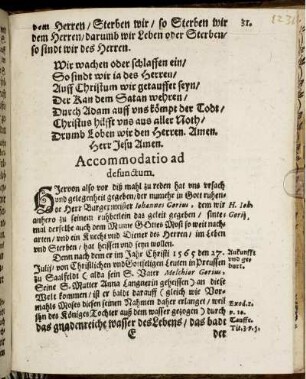 dem Herren/ Sterben wir/ so Sterben wir
31.
dem Herren/ darumb wir Leben oder Sterben/
so sindt wir des Herren.
Wir wachen oder schlaffen ein/
So sindt wir ia des Herren/
Auff Christum wir getauffet seyn/
Der Kan dem Satan wehren/
Durch Adam auff uns kömpt der Todt/
Christus hilfft uns aus aller Noth/
Drumb Loben wir den Herren. Amen.
Herr Jesu Amen.
Accommodatio ad
defunctum.
Hiervon also vor diß mahl zu reden hat uns ursach
und gelegenheit gegeben/ der numehr in Gott ruhen-
de Herr Burgermeister Iohannes Gorius, dem wir
H. Ioh.
anhero zu seinem ruhbetlein das geleit gegeben/
Gorij
mal derselbe auch dem Munde Gottes
nach
arten/ und ein Knecht und Diener des Herren/ im Leben
und Sterben/ hat heissen und seyn wollen.
Denn nach dem er im Jahr Christi 1565 den 27.
Julij/ von Christlichen und Gottseligen Leuten in Preussen
zu Saalfeldt (alda sein S. Vater Melchior Gorius,
Seine S. Mutter Anna Langnerin geheissen) an diese
Welt kommen/ ist er balde darauff (gleich wie Vor-
mahls Moses diesen seinen Nahmen daher erlanget/ weil
ihn des Königes Tochter aus dem wasser gezogen) durch
das gnadenreiche wasser des Lebens/ das badt
Ankunfft
und ge-
burt.
Exod. 2.
v. 10.
Tauffe.
Tit. 3. v. 5.
E
der